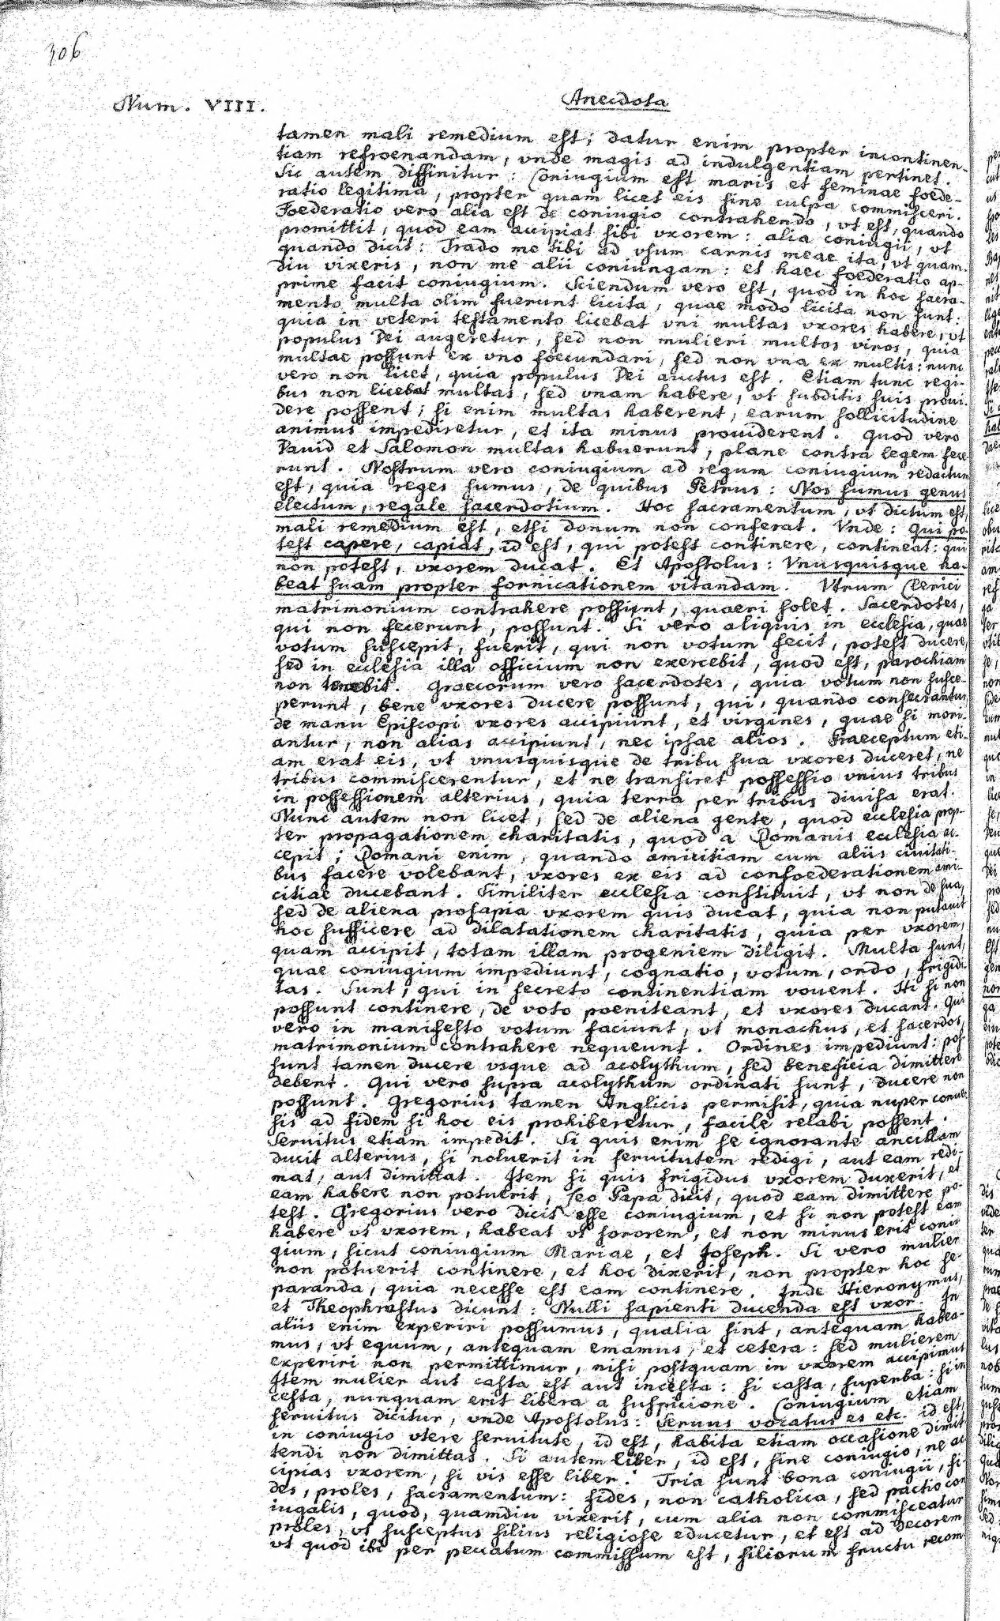 306
Num. VIII.
Anecdota
tamen mali remedium est; datur enim propter incontinen-
tiam refroenandam, vnde magis ad indulgentiam pertinet.
Sic autem diffinitur: Coniugium est maris et feminae foede-
ratio legitima, propter quam licet eis sine culpa commisceri.
Foederatio vero alia est de coniugio contrahendo, vt est, quando
promittit, quod eam accipiat sibi vxorem: alia coniugii, vt
quando dicit: Trado me tibi ad vsum carnis meae ita, vt quam-
diu vixeris, non me alii coniungam: et haec foederatio ap-
prime facit coniugium. Sciendum vero est, quod in hoc sacra-
mento multa olim fuerunt licita, quae modo licita non sunt:
quia in veteri testamento licebat vni multas vxores habere, vt
populus Dei augeretur, sed non mulieri multos viros, quia
multae possunt ex vno foecundari, sed non vna ex multis: nunc
vero non licet, quia populus Dei auctus est. Etiam tunc regi-
bus non licebat multas, sed vnam habere, vt subditis suis provi-
dere possent; si enim multas haberent, earum sollicitudine
animus impediretur, et ita minus prouiderent. Quod vero
Dauid et Salomon multas habuerunt, plane contra legem fece
runt. Nostrum vero coniugium ad regum coniugium redactum
est, quia reges sumus, de quibus Petrus: Nos sumus genus
electum, regale sacerdotium. Hoc sacramentum, vt dictum est,
mali remedium est, etsi donum non conferat. Vnde: Qui po
test capere, capiat, id est, qui potest continere, contineat: qui
non potest, vxorem ducat. Et Apostolus: Vnusquisque ha-
beat suam propter fornicationem vitandam. Vtrum Clerici
matrimonium contrahere possunt, quaeri solet. Sacerdotes,
qui non fecerunt, possunt. Si vero aliquis in ecclesia, quae
votum suscepit, fuerit, qui non votum fecit, potest ducere,
sed in ecclesia illa officium non exercebit, quod est, parochiam
non tenebit. Graecorum vero sacerdotes, quia votum non susce-
perunt, bene vxores ducere possunt, qui, quando consecrantur
de manu Episcopi vxores accipiunt, et virgines, quae si mori-
antur, non alias accipiunt, nec ipsae alios. Praeceptum eti-
am erat eis, vt vnusquisque de tribu sua vxores duceret, ne
tribus commiscerentur, et ne transiret possessio vnius tribus
in possessionem alterius, quia terra per tribus diuisa erat.
Nunc autem non licet, sed de aliena gente, quod ecclesia prop-
ter propagationem charitatis, quod a Romanis ecclesia ac-
cepit; Romani enim, quando amicitiam cum aliis ciuitati-
bus facere volebant, vxores ex eis ad confoederationem ami-
citiae ducebant. Similiter ecclesia constituit, vt non de sua,
sed de aliena prosapia vxorem quis ducat, quia non putauit
hoc sufficere ad dilatationem charitatis, quia per vxorem,
quam accipit, totam illam progeniem diligit. Multa sunt,
quae coniugium impediunt, cognatio, votum, ordo, frigidi-
tas. Sunt, qui in secreto continentiam vouent. Hi si non
possunt continere, de voto poeniteant, et vxores ducant. Qui
vero in manifesto votum faciunt, vt monachus, et sacerdos,
matrimonium contrahere nequeunt. Ordines impediunt: pos-
sunt tamen ducere vsque ad acolythum, sed beneficia dimittere
debent. Qui vero supra acolythum ordinati sunt, ducere non
possunt. Gregorius tamen Anglicis permisit, quia nuper conuer-
sis ad fidem si hoc eis prohiberetur, facile relabi possent.
Seruitus etiam impedit. Si quis enim se ignorante ancillam
ducit alterius, si noluerit in seruitutem redigi, aut eam redi-
mat, aut dimittat. Item si quis frigidus vxorem duxerit, et
eam habere non potuerit, Leo Papa dicit, quod eam dimittere po-
test. Gregorius vero dicit esse coniugium, et si non potest eam
habere vt vxorem, habeat vt sororem, et non minus erit coniu-
gium, sicut coniugium Mariae, et Joseph. Si vero mulier
non potuerit continere, et hoc dixerit, non propter hoc se-
paranda, quia necesse est eam continere. Inde Hieronymus,
et Theophrastus dicunt: Nulli sapienti ducenda est vxor. In
aliis enim experiri possumus, qualia sint, antequam habea-
mus, vt equum, antequam emamus, et cetera: sed mulierem
experiri non permittimur, nisi postquam in vxorem accipimus
Item mulier aut casta est aut incesta: si casta, superba: si in
cesta, nunquam erit libera a suspicione. Coniugium etiam
seruitus dicitur, vnde Apostolus: Seruus vocatus es etc. id est,
in coniugio vtere seruitute, id est, habita etiam occasione dimit
tendi non dimittas. Si autem liber, id est, sine coniugio, ne ac
cipias vxorem, si vis esse liber. Tria sunt bona coniugii, fi
des, proles, sacramentum: fides, non catholica, sed pactio con
iugalis, quod, quamdiu vixerit, cum alia non commisceatur
proles, vt susceptus filius religiose educetur, et est ad decorem
vt quod ibi per peccatum commissum est, filiorum fructu recom